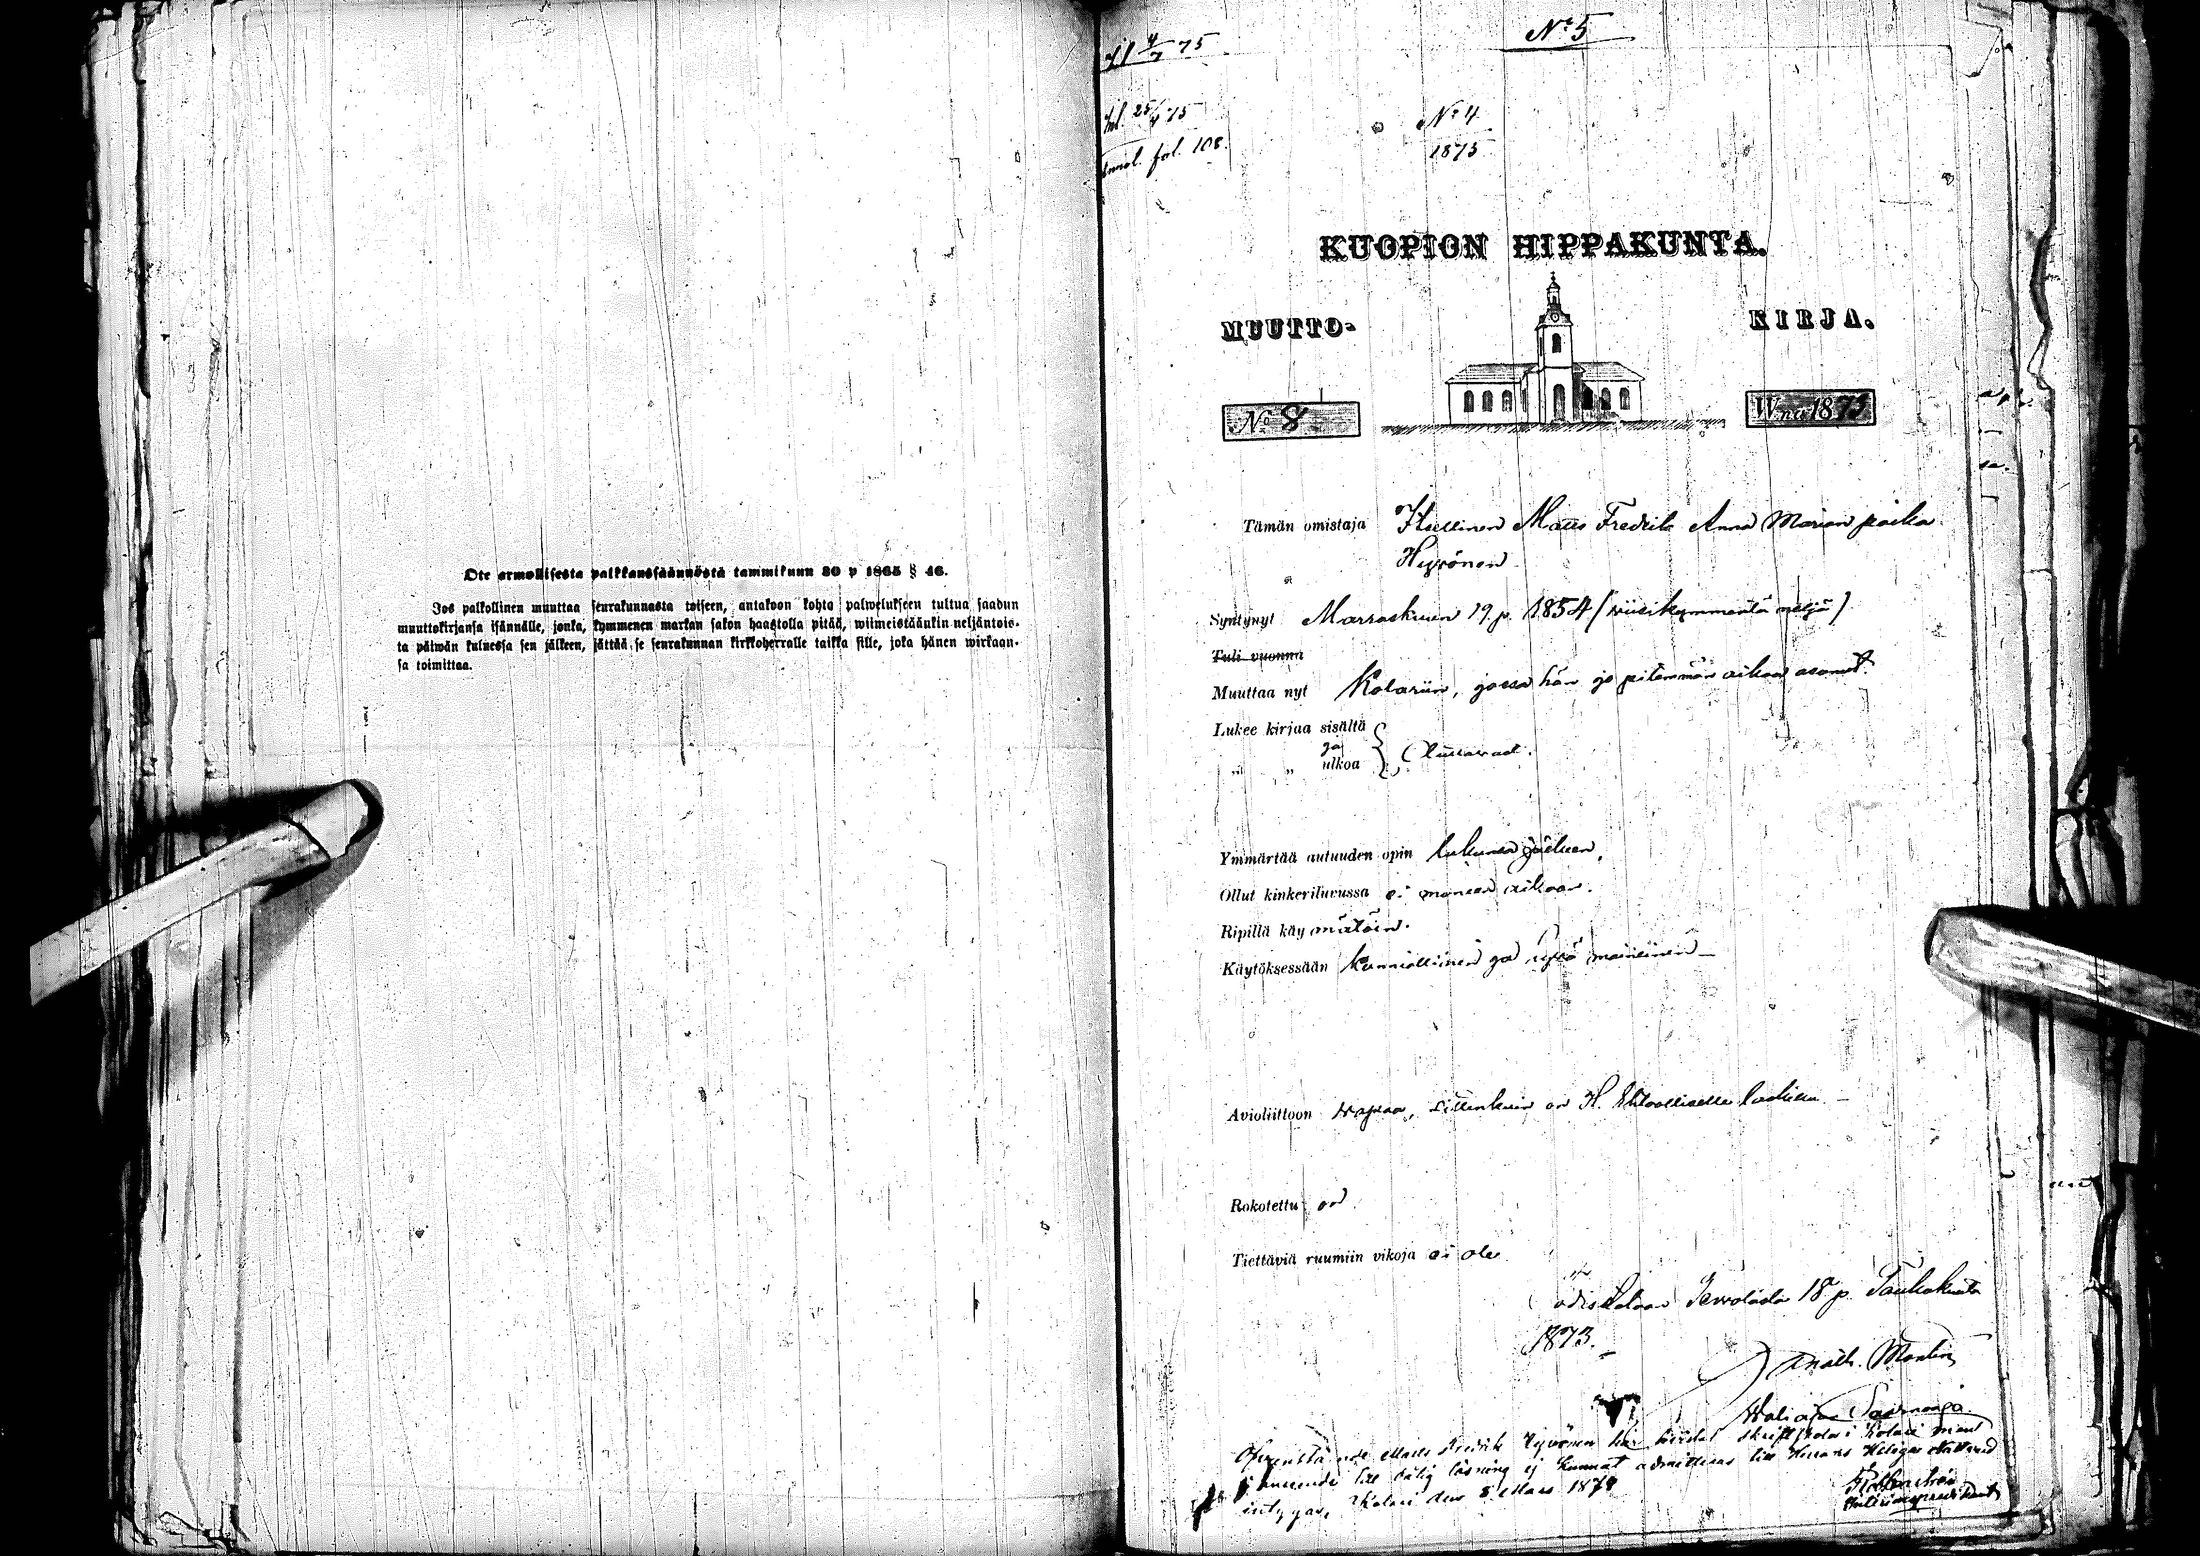 Ote armollisesta palkkaussäännöstä tammikuun 30 p 1865 § 46.
Jos palkollinen muuttaa seurakunnasta toiseen, antakoon kohta palwelukseen tultua saadun
muuttokirjansa isännälle, jonka, kymmenen markan sakon haastolla pitää, wiimeistäänkin neljäntois-
ta päiwän kuluessa sen jälkeen, jättää se seurakunnan kirkkoherralle taikka sille, joka hänen wirkaan-
sa toimittaa.
4/7 75
No 5
25/4 75
fol. 108.
No 4
1875
KUOPION HIPPAKUNTA.
MUUTTO- KIRJA.
No 8 W:na 1873
Tämän omistaja Itsellinen Matts Fredrik Anna Marian poika
Hyvönen
Syntynyt Marraskuun 19 p. 1854 (wiisikymmentä neljä)
Tuli vuonna
Muuttaa nyt Kolariin, jossa hän jo pitemmän aikaa asunut.
Lukee kirjaa sisältä
ja
„ „ ulkoa
Ymmärtää autuuden opin lukunsa jälkeen.
Ollut kinkeriluvussa ei moneen aikaan.
Ripillä käymätöin.
Käytöksessään kunniallinen ja hywä maineinen
Avioliittoon wapaa, sittenkuin on H. Ehtoolliselle laskettu.
Rokotettu on
Tiettäviä ruumiin vikoja ei ole
18 p. Toukokuuta
1873.
Math. Montin
Ofvanstående Matts Fredrik Hyvönen har skriftskola i Kolari men
i anseende till dålig läsning ej kunnat admitteras till Herrans Heliga Nattvard
intygar, Kolari den 8 Mars 1878